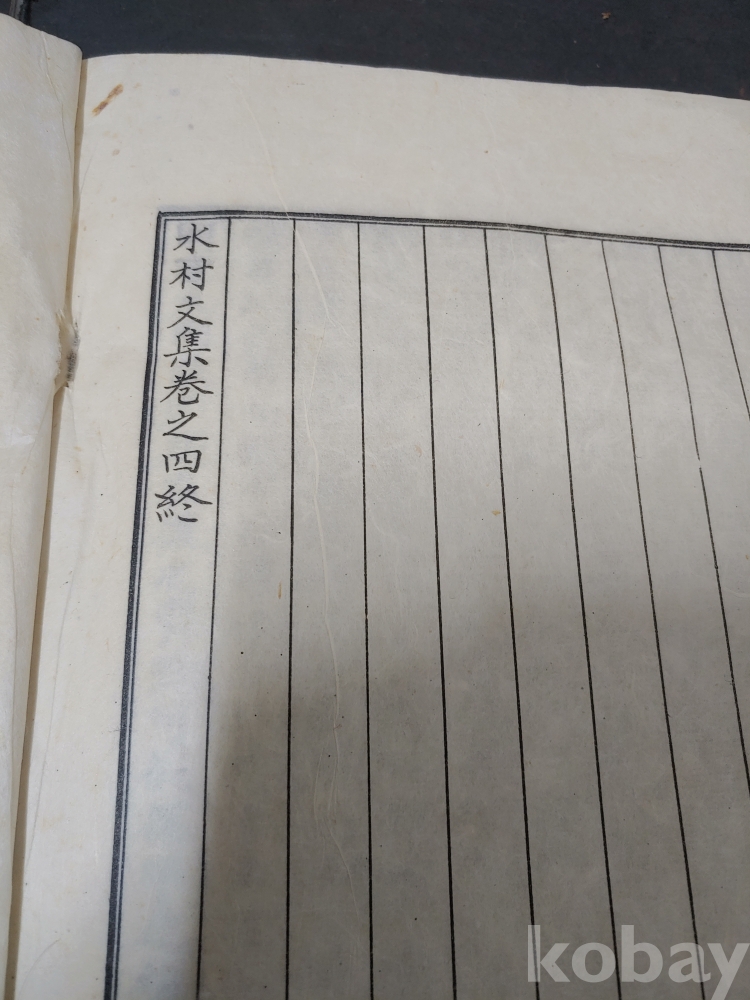 水村文集卷之四終
kobay